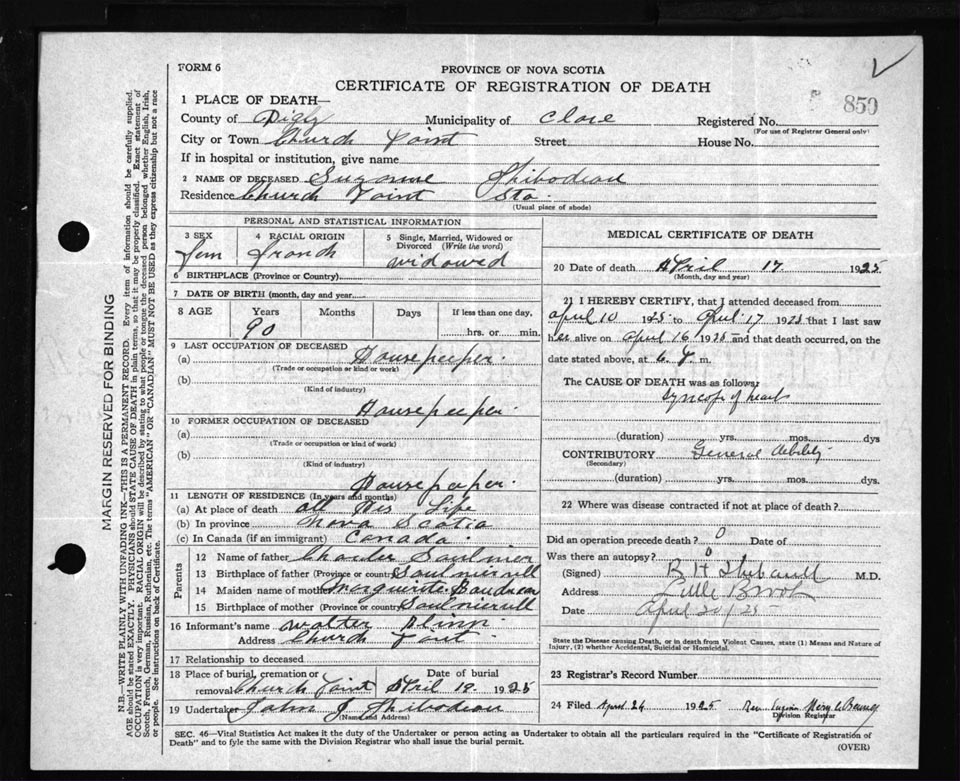 FORM 6
PROVINCE OF NOVA SCOTIA
CERTIFICATE OF REGISTRATION OF DEATH
850
1 PLACE OF DEATH—
County of Digby Municipality of Clare Registered No.
(For use of Registrar General only)
City or Town Church Point Street House No.
If in hospital or institution, give name
2 NAME OF DECEASED Suzanne Thibodeau
Residence Church Point
(Usual place of abode)
PERSONAL AND STATISTICAL INFORMATION
3 SEX 4 RACIAL ORIGIN 5 Single, Married, Widowed or Divorced (Write the word)
Fem French widowed
6 BIRTHPLACE (Province or Country)
7 DATE OF BIRTH (month, day and year)
8 AGE Years Months Days If less than one day.
90 hrs. or min.
9 LAST OCCUPATION OF DECEASED
(a) Housekeeper.
(Trade or occupation or kind or work)
(b)
(Kind of industry)
Housekeeper.
10 FORMER OCCUPATION OF DECEASED
(a)
(Trade or occupation or kind of work)
(b)
(Kind of industry)
Housekeeper.
11 LENGTH OF RESIDENCE (In years and months)
(a) At place of death all Her Life
(b) In province Nova Scotia
(c) In Canada (if an immigrant) Canada.
Parents
12 Name of father Charles Saulnier
13 Birthplace of father (Province or country)
14 Maiden name of mother Marguerite
15 Birthplace of mother (Province or country)
16 Informant's name Walter Blinn.
Address Church Point
17 Relationship to deceased
18 Place of burial, cremation or removal Church Point Date of burial April 19 1925
19 Undertaker John J Thibodeau
(Name and Address)
MEDICAL CERTIFICATE OF DEATH
20 Date of death April 17 1925
(Month, day and year)
21 I HEREBY CERTIFY, that I attended deceased from
April 10 1925 to April 17 1925 that I last saw
her alive on April 16 1925 and that death occurred, on the
date stated above, at 6 m.
The CAUSE OF DEATH was as follows:
Syncope of heart
(duration) yrs. mos. dys
CONTRIBUTORY General debility
(Secondary)
(duration) yrs. mos. dys.
22 Where was disease contracted if not at place of death?
Did an operation precede death? 0 Date of
Was there an autopsy? 0
(Signed) M.D.
Address
Date April 20/25
State the Disease causing Death, or in death from Violent Causes, state (1) Means and Nature of Injury, (2) whether Accidental, Suicidal or Homicidal.
23 Registrar's Record Number
24 Filed April 24 1925 Rev.
Division Registrar
SEC. 46—Vital Statistics Act makes it the duty of the Undertaker or person acting as Undertaker to obtain all the particulars required in the "Certificate of Registration of
Death" and to fyle the same with the Division Registrar who shall issue the burial permit. (OVER)
MARGIN RESERVED FOR BINDING
N.B.—WRITE PLAINLY WITH UNFADING INK—THIS IS A PERMANENT RECORD. Every item of information should be carefully supplied.
AGE should be stated EXACTLY. PHYSICIANS should STATE CAUSE OF DEATH in plain terms, so that it may be properly classified. Exact statement of
OCCUPATION is very important. RACIAL ORIGIN will be described by stating to what people or tongue the deceased person belonged whether English, Irish,
Scotch, French, German, Russian, Ruthenian, etc. The terms "AMERICAN" OR "CANADIAN" MUST NOT BE USED as they express citizenship but not a race
or people. See instructions on back of Certificate.